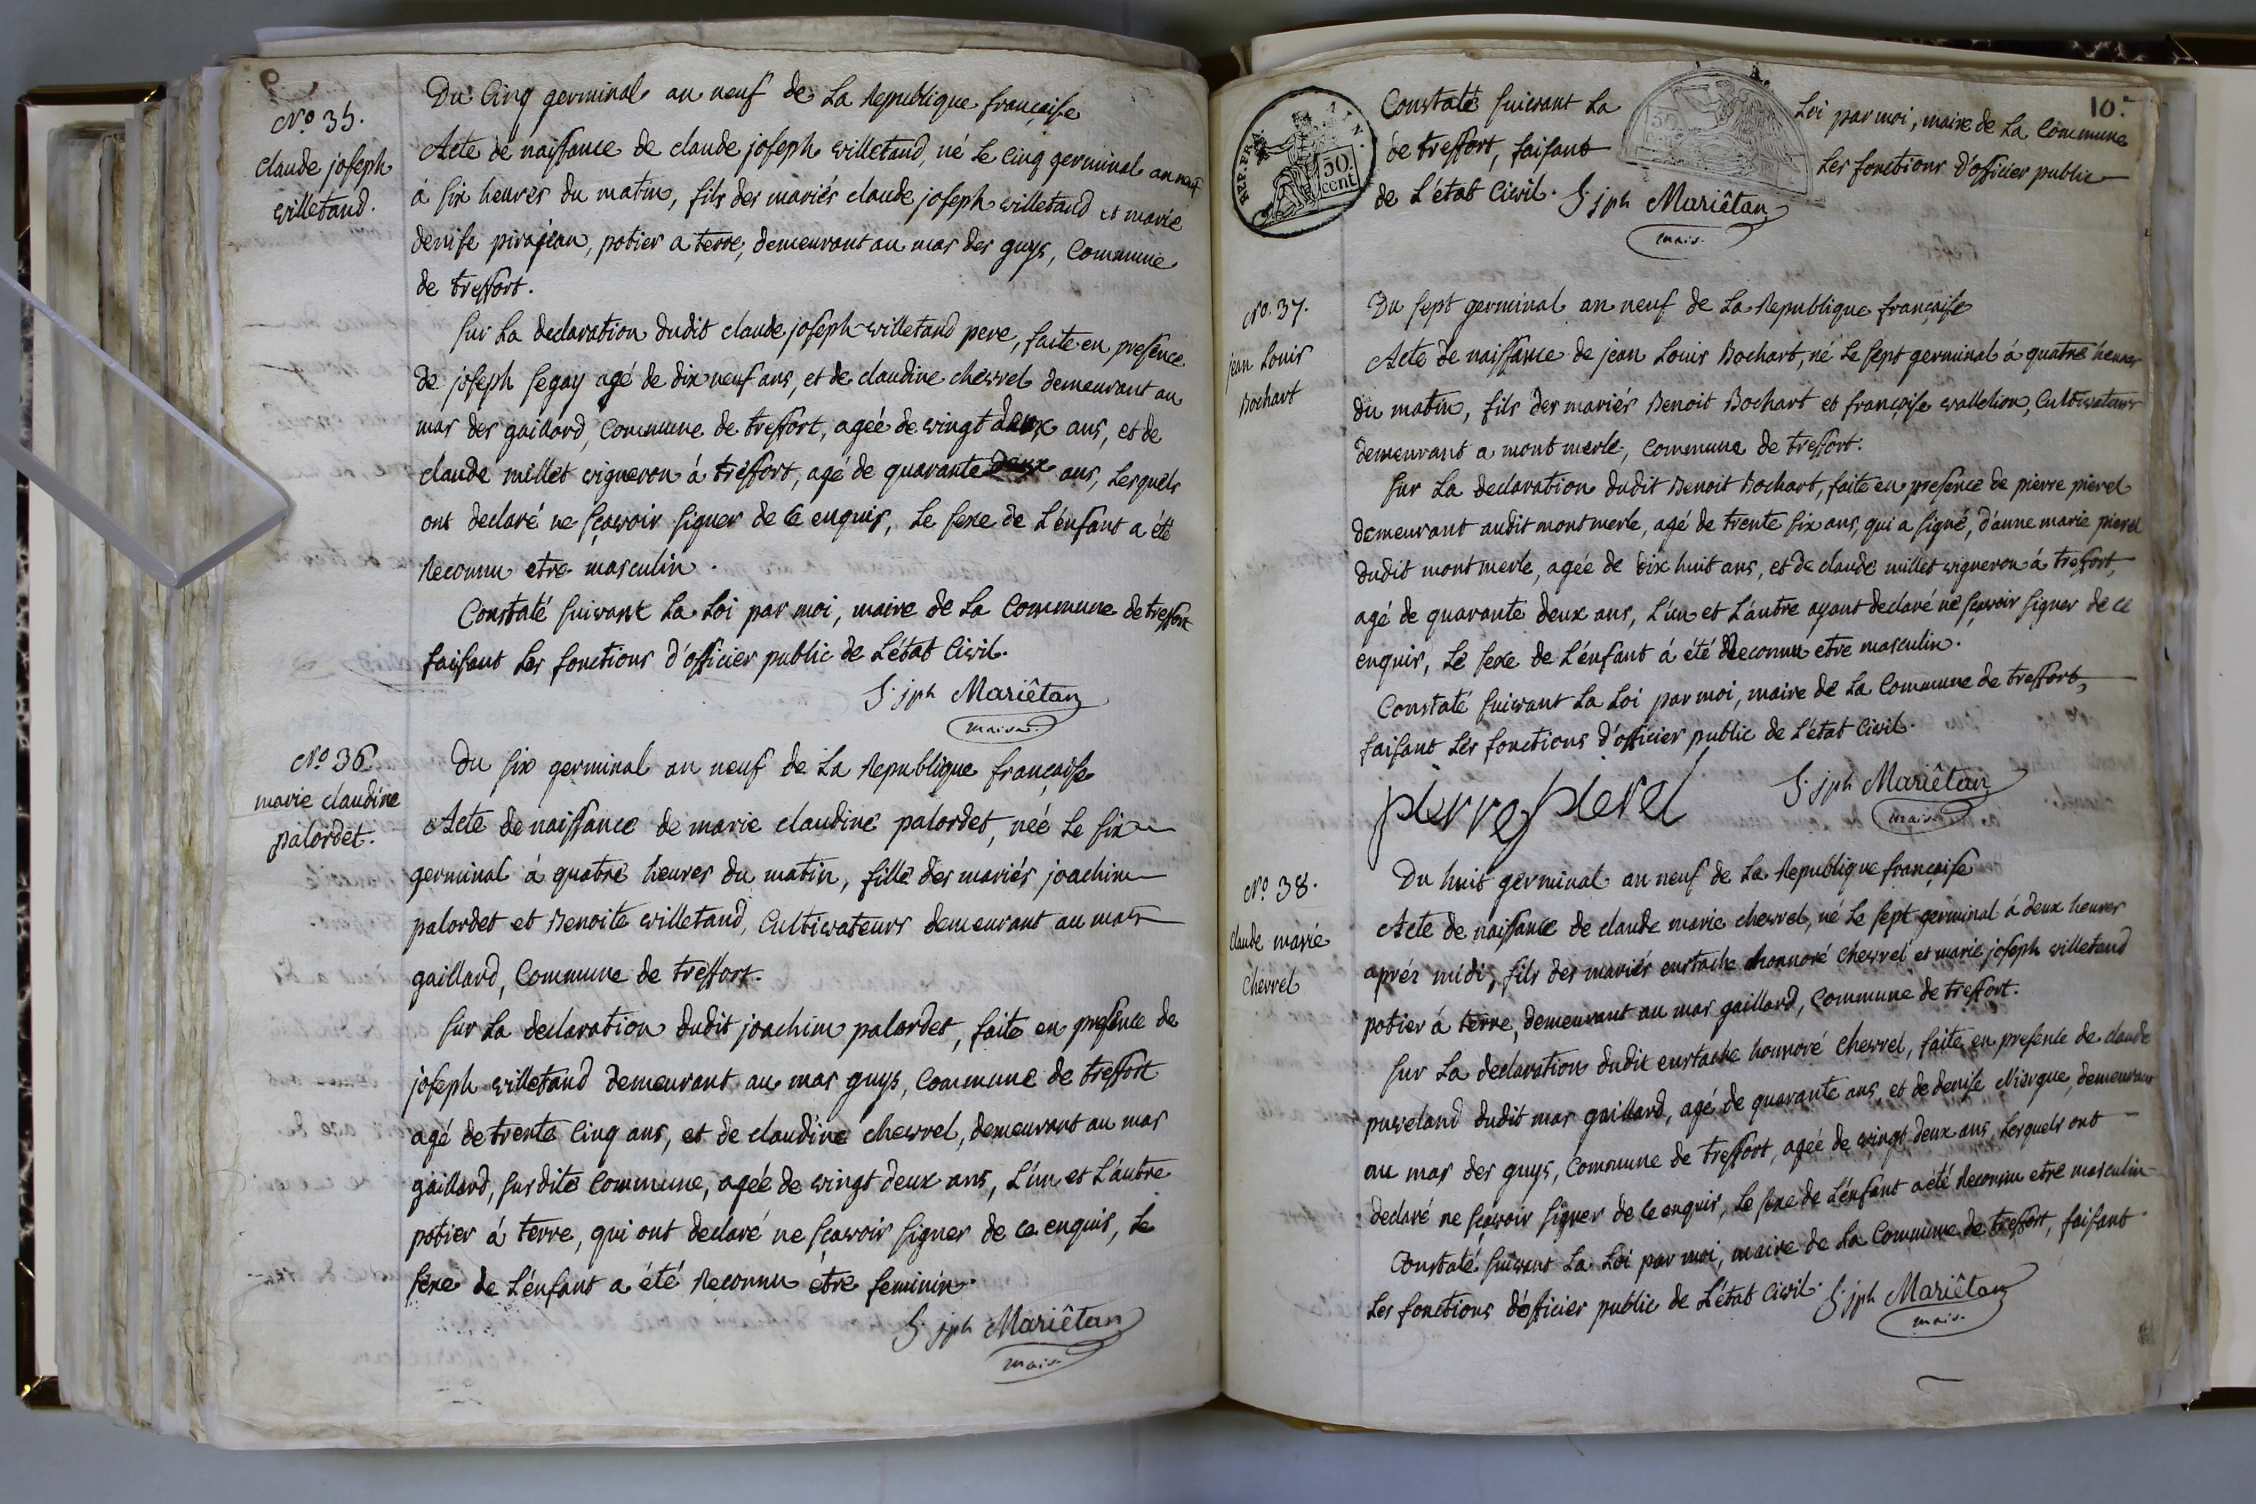 N.o 35.
claude joseph
villetand.
Du Cinq germinal an neuf de La Republique française
Acte de naissance de claude joseph villetand, né Le Cinq germinal an neuf
à six heures du matin, fils des mariés claude joseph villetand et marie
denise pirajean, potier a terre, demeurant au mas des guys, Commune
de treffort.
sur La declaration dudit claude joseph villetand pere, faite en presence
de joseph segay agé de dix neuf ans, et de claudine chevrel demeurant au
mas des gaillard, Commune de treffort, agée de vingt deux ans, et de
claude millet vigneron à treffort, agé de quarante deux ans, Lesquels
ont declaré ne sçavoir signer de ce enquis, Le sexe de L'enfant a été
Reconnu etre masculin.
Constaté suivant La Loi par moi, maire de La Commune de treffort
faisant Les fonctions d'officier public de L'état Civil.
S. jph Mariêtan
maire.
N.o 36.
marie claudine
palordet.
Du six germinal an neuf de La Republique française
Acte de naissance de marie claudine palordet, née Le six
germinal à quatre heures du matin, fille des mariés joachim
palordet et Benoite villetand, Cultivateurs demeurant au mas
gaillard, Commune de treffort.
sur La declaration dudit joachim palordet, faite en presence de
joseph villetand demeurant au mas guys, Commune de treffort
agé de trente Cinq ans, et de claudine chevrel, demeurant au mas
gaillard, susdite Commune, agée de vingt deux ans, L'un et L'autre
potier à terre, qui ont declaré ne sçavoir signer de ce enquis, Le
sexe de L'enfant a été Reconnu être feminin.
S. jph Mariêtan
maire
10.
REP. FRA.
50
cent
Constaté suivant La Loi par moi, maire de La Commune
de treffort, faisant Les fonctions d'officier public
de L'état Civil. S. jph Mariêtan
maire.
No. 37.
jean Louis
Bochart
Du sept germinal an neuf de La Republique française
Acte de naissance de jean Louis Bochart, né Le sept germinal à quatre heures
du matin, fils des mariés Benoit Bochart et françoise valletion, Cultivateurs
demeurant a mont merle, Commune de treffort.
sur La declaration dudit Benoit Bochart, faite en presence de pierre pierel
demeurant audit mont merle, agé de trente six ans, qui a signé, d'anne marie pierel
dudit mont merle, agée de dix huit ans, et de claude millet vigneron à treffort,
agé de quarante deux ans, L'un et L'autre ayant declaré ne sçavoir signer de ce
enquis, Le sexe de L'enfant à été Reconnu etre masculin.
Constaté suivant La Loi par moi, maire de La Commune de treffort,
faisant Les fonctions d'officier public de L'état Civil.
pierre pierel
S. jph Mariêtan
maire
N.o 38.
claude marie
chevrel
Du huit germinal an neuf de La Republique française
Acte de naissance de claude marie chevrel, né Le sept germinal à deux heures
aprés midi, fils des mariés eustache honnoré chevrel et marie joseph villetand
potier à terre, demeurant au mas gaillard, Commune de treffort.
sur La declaration dudit eustache honnoré chevrel, faite en presence de claude
puveland dudit mas gaillard, agé de quarante ans, et de denise Niorgue, demeurant
au mas des guys, Commune de treffort, agée de vingt deux ans, Lesquels ont
declaré ne sçavoir signer de ce enquis, Le sexe de L'enfant a été Reconnu etre masculin
Constaté suivant La Loi par moi, maire de La Commune de treffort, faisant
Les fonctions d'officier public de L'état Civil. S. jph Mariêtan
maire.